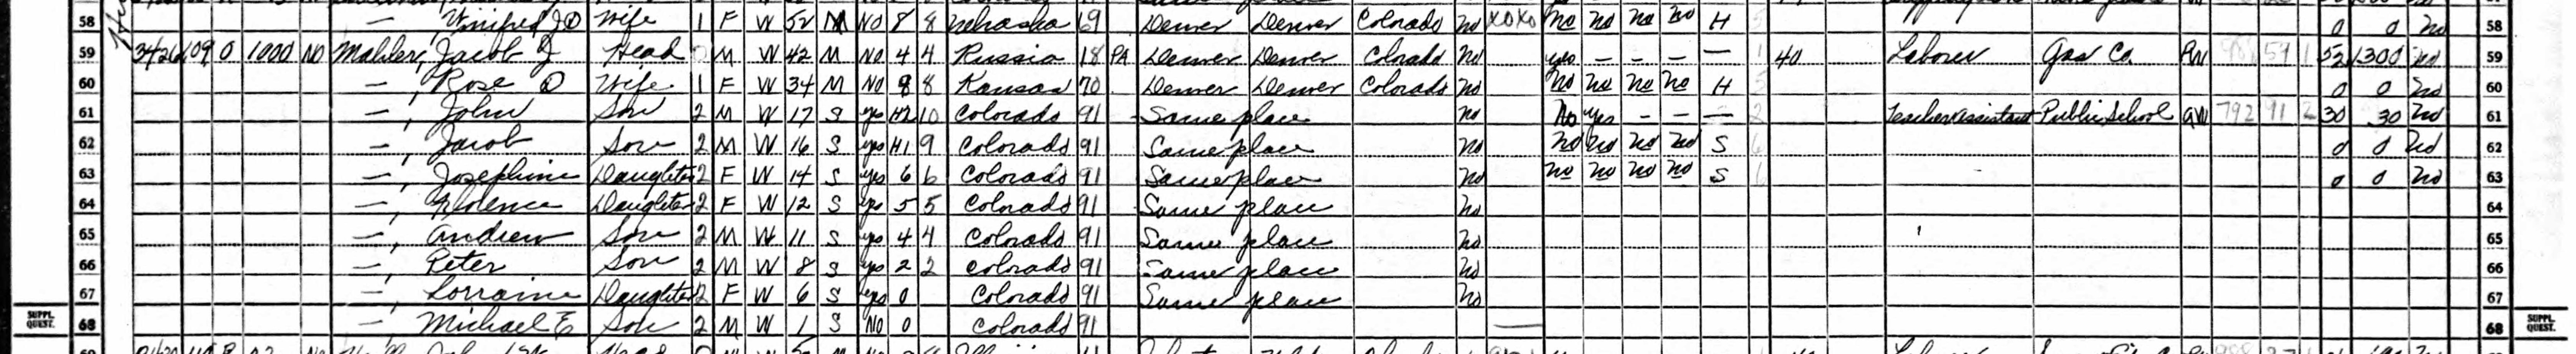 58 — , Winifred J O Wife 1 F W 52 M No 8 8 Nebraska 69 Denver Denver Colorado No X0X0 No No No No H 0 0 No 58
59 3426 109 O 1000 No Mahler, Jacob J Head 0 M W 42 M No 4 4 Russia 18 PA Denver Denver Colorado No yes — — — — 1 40 Laborer Gas Co. PW 52 1300 No 59
60 — , Rose O Wife 1 F W 34 M No 8 8 Kansas 70 Denver Denver Colorado No No No No No H 0 0 No 60
61 — , John Son 2 M W 17 S yes H2 10 Colorado 91 Same place No No yes — — — 2 Teacher assistant Public School GW 792 91 2 30 30 No 61
62 — , Jacob Son 2 M W 16 S yes H1 9 Colorado 91 Same place No No No No No S 0 0 No 62
63 — , Josephine Daughter 2 F W 14 S yes 6 6 Colorado 91 Same place No No No No No S 0 0 No 63
64 — , Florence Daughter 2 F W 12 S yes 5 5 Colorado 91 Same place No 64
65 — , Andrew Son 2 M W 11 S yes 4 4 Colorado 91 Same place No 65
66 — , Peter Son 2 M W 8 S yes 2 2 Colorado 91 Same place No 66
67 — , Lorraine Daughter 2 F W 6 S yes 0 Colorado 91 Same place No 67
SUPPL. QUEST. 68 — Michael E Son 2 M W 1 S No 0 Colorado 91 — 68 SUPPL. QUEST.